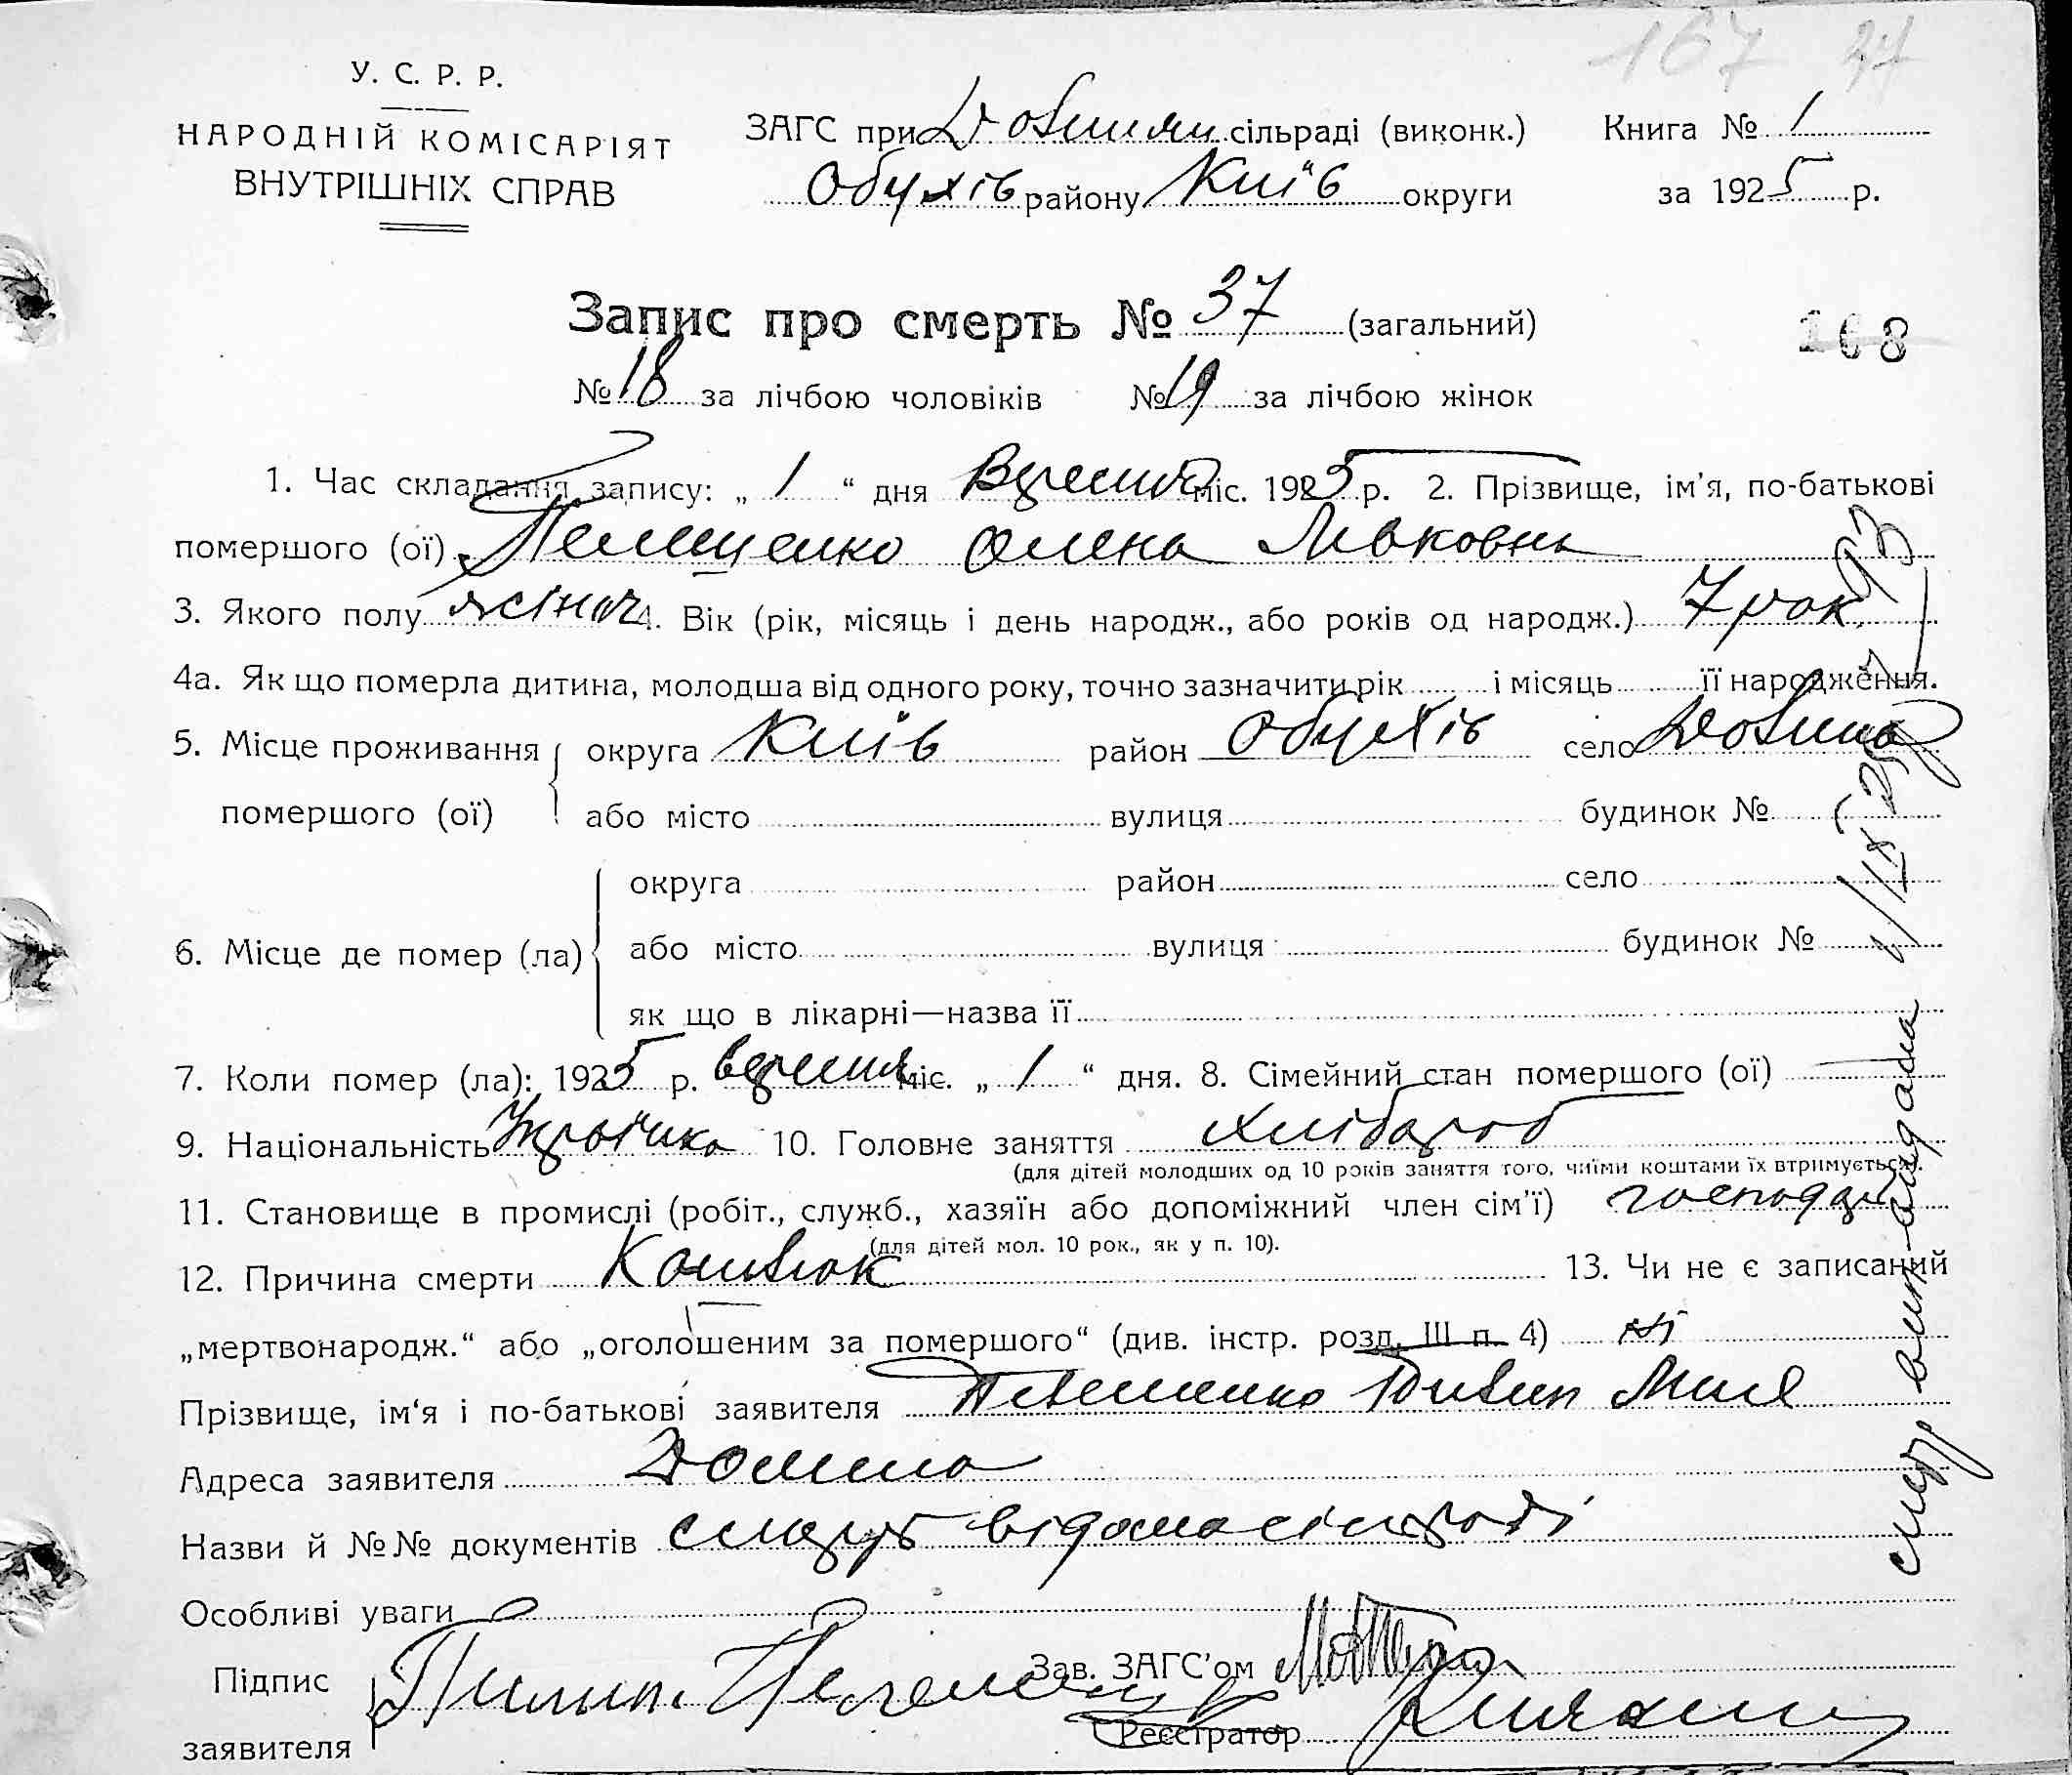 167 37
У. С. Р. Р.
НАРОДНІЙ КОМІСАРІЯТ
ВНУТРІШНІХ СПРАВ
ЗАГС при сільраді (виконк.) Книга № 1
Обухів району Київ округи за 1925 р.
Запис про смерть № 37 (загальний)
168
№ 18 за лічбою чоловіків № 19 за лічбою жінок
1. Час складання запису: „ 1 “ дня Вересня міс. 1925 р. 2. Прізвище, ім’я, по-батькові
помершого (ої) Олена Левковна
3. Якого полу жіноч 4. Вік (рік, місяць і день народж., або років од народж.) 7 рок.
4а. Як що померла дитина, молодша від одного року, точно зазначити рік і місяць її народження.
5. Місце проживання округа Київ район Обухів село
помершого (ої) або місто вулиця будинок №
округа район село
6. Місце де помер (ла) або місто вулиця будинок №
як що в лікарні—назва її
7. Коли помер (ла): 1925 р. вересня міс. „ 1 “ дня. 8. Сімейний стан помершого (ої) —
9. Національність Українка 10. Головне заняття хлібароб
(для дітей молодших од 10 років заняття того, чиїми коштами їх втримується).
11. Становище в промислі (робіт., служб., хазяїн або допоміжний член сім’ї) господар
(для дітей мол. 10 рок., як у п. 10).
12. Причина смерти Кашлюк 13. Чи не є записаний
„мертвонародж.“ або „оголошеним за помершого“ (див. інстр. розд. III п. 4) ні
Прізвище, ім‘я і по-батькові заявителя
Адреса заявителя
Назви й №№ документів відома сільраді
Особливі уваги
Підпис Пилип Зав. ЗАГС’ом
заявителя Реєстратор